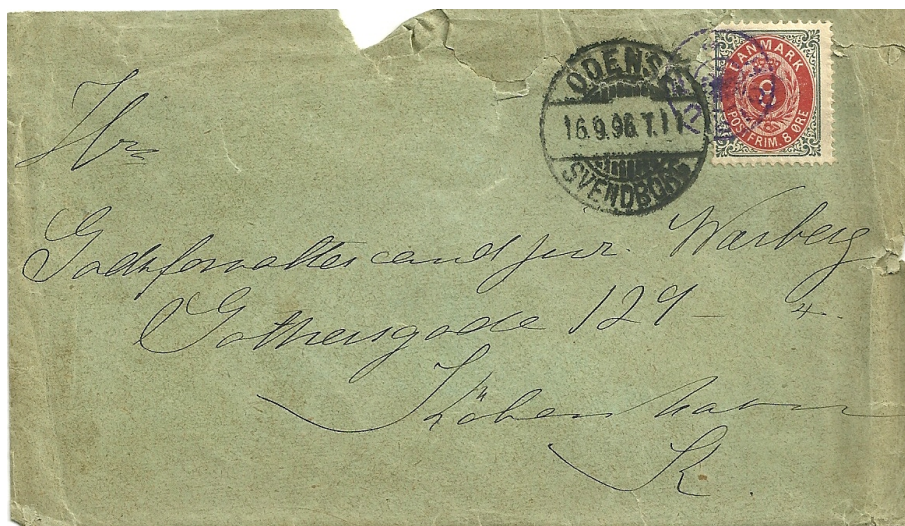 ODENSE
16.9.96.T.1
SVENDBORG
DANMARK
8
POSTFRIM. 8 ØRE
Hr
Godsforvalter cand jur. Warberg
Gothersgade 129 - 4.
København
K.